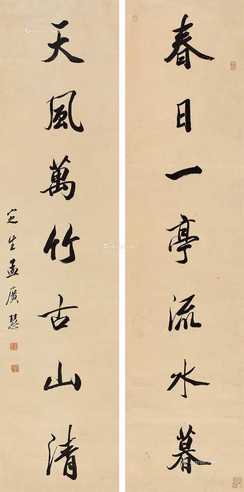 春日一亭流水暮
天風萬竹古山清
定生孟廣慧